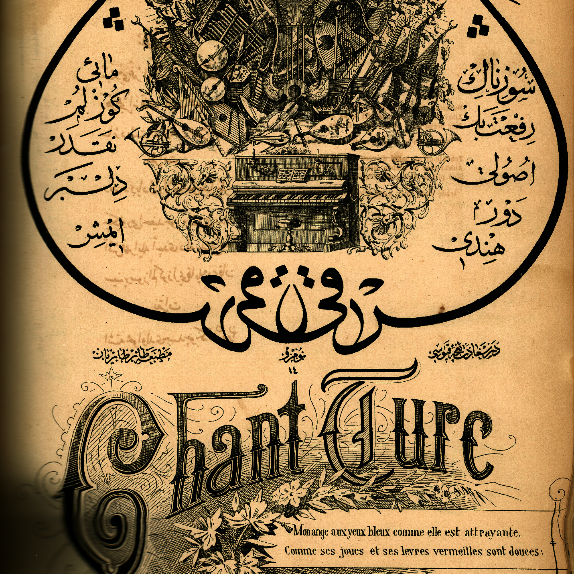 سوزناك
رفعت بك
اصولى
دور
هندى
مائى
كوزلر
نقدر
دلبر
ايمش
نومرو
١٤
Chant Turc
Mon ange aux yeux bleux comme elle est attrayante.
Comme ses joues et ses levres vermeilles sont douces: